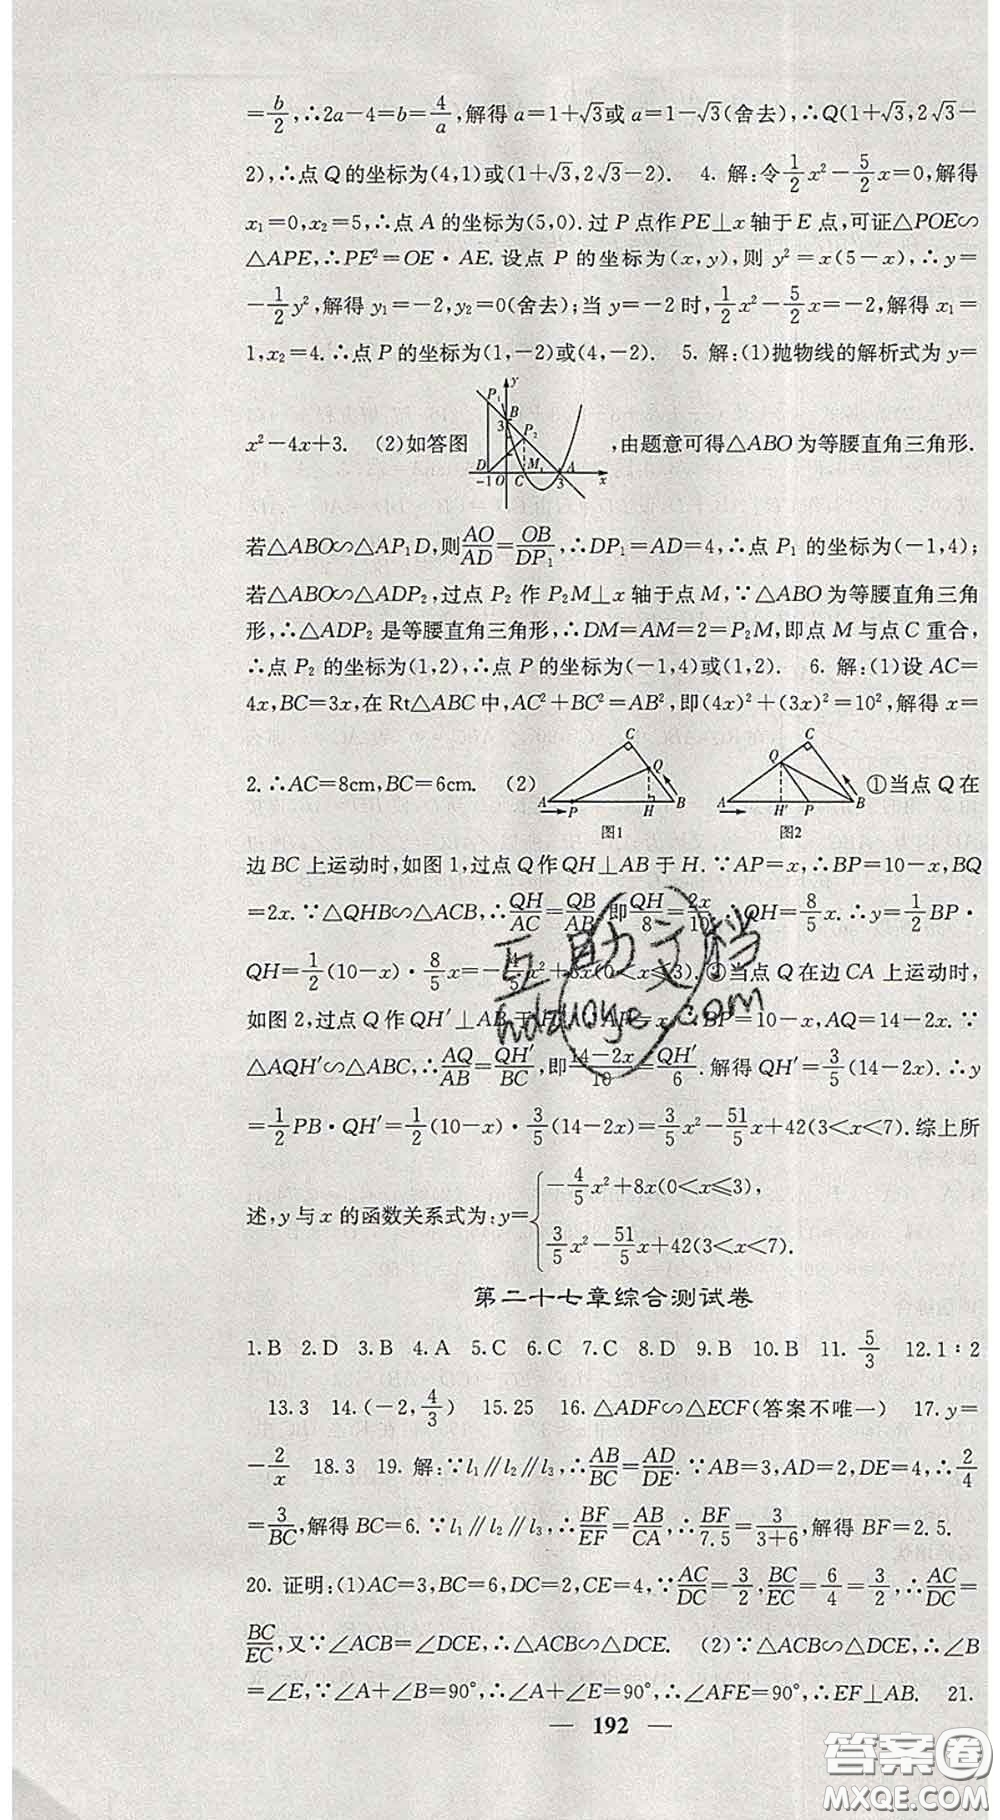 =b/2,∴2a-4=b=4/a,解得a=1+√3或a=1-√3(舍去),∴Q(1+√3,2√3-
2),∴点Q的坐标为(4,1)或(1+√3,2√3-2). 4. 解:令1/2x²-5/2x=0,解得
x₁=0,x₂=5,∴点A的坐标为(5,0).过P点作PE⊥x轴于E点,可证△POE∽
△APE,∴PE²=OE·AE.设点P的坐标为(x,y),则y²=x(5-x),∴y=
-1/2y²,解得y₁=-2,y₂=0(舍去);当y=-2时,1/2x²-5/2x=-2,解得x₁=
1,x₂=4.∴点P的坐标为(1,-2)或(4,-2). 5. 解:(1)抛物线的解析式为y=
x²-4x+3. (2)如答图,由题意可得△ABO为等腰直角三角形.
P₁ y B 3 P₂ D -1 O C M 3 A x
若△ABO∽△AP₁D,则AO/AD=OB/DP₁,∴DP₁=AD=4,∴点P₁的坐标为(-1,4);
若△ABO∽△ADP₂,过点P₂作P₂M⊥x轴于点M,∵△ABO为等腰直角三角
形,∴△ADP₂是等腰直角三角形,∴DM=AM=2=P₂M,即点M与点C重合,
∴点P₂的坐标为(1,2),∴点P的坐标为(-1,4)或(1,2). 6. 解:(1)设AC=
4x,BC=3x,在Rt△ABC中,AC²+BC²=AB²,即(4x)²+(3x)²=10²,解得x=
2.∴AC=8cm,BC=6cm. (2)①当点Q在
C Q A P H B 图1
C Q A H′ P B 图2
边BC上运动时,如图1,过点Q作QH⊥AB于H.∵AP=x,∴BP=10-x,BQ
=2x.∵△QHB∽△ACB,∴QH/AC=QB/AB,即QH/8=2x/10,QH=8/5x.∴y=1/2BP·
QH=1/2(10-x)·8/5x=-4/5x²+8x(0<x≤3).②当点Q在边CA上运动时,
如图2,过点Q作QH′⊥AB于H′,∵AP=x,∴BP=10-x,AQ=14-2x.∵
△AQH′∽△ABC,∴AQ/AB=QH′/BC,即14-2x/10=QH′/6.解得QH′=3/5(14-2x).∴y
=1/2PB·QH′=1/2(10-x)·3/5(14-2x)=3/5x²-51/5x+42(3<x<7).综上所
述,y与x的函数关系式为:y={-4/5x²+8x(0<x≤3),
3/5x²-51/5x+42(3<x<7).
第二十七章综合测试卷
1.B 2.D 3.B 4.A 5.C 6.C 7.C 8.D 9.B 10.B 11.5/3 12.1∶2
13.3 14.(-2,4/3) 15.25 16.△ADF∽△ECF(答案不唯一) 17.y=
-2/x 18.3 19.解:∵l₁∥l₂∥l₃,∴AB/BC=AD/DE.∵AB=3,AD=2,DE=4,∴2/4
=3/BC,解得BC=6.∵l₁∥l₂∥l₃,∴BF/EF=AB/CA,∴BF/7.5=3/3+6,解得BF=2.5.
20. 证明:(1)AC=3,BC=6,DC=2,CE=4,∵AC/DC=3/2,BC/EC=6/4=3/2,∴AC/DC=
BC/EC,又∵∠ACB=∠DCE,∴△ACB∽△DCE. (2)∵△ACB∽△DCE,∴∠B
=∠E,∵∠A+∠B=90°,∴∠A+∠E=90°,∴∠AFE=90°,∴EF⊥AB. 21.
— 192 —
互助文档
hdzuoye.com
答案圈
MXQE.COM